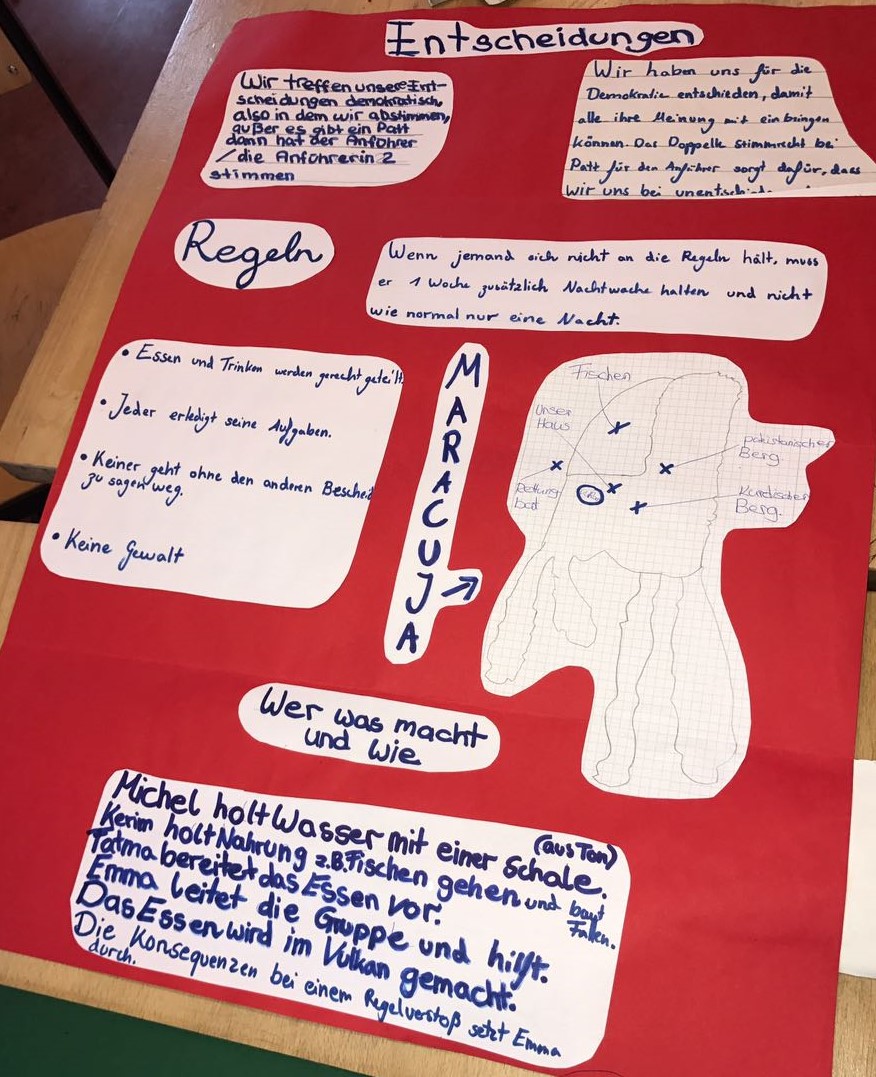 Entscheidungen
Wir treffen unsere Ent-
scheidungen demokratisch,
also in dem wir abstimmen,
außer es gibt ein Patt
dann hat der Anführer
/die Anführerin 2
stimmen
Wir haben uns für die
Demokratie entschieden, damit
alle ihre Meinung mit einbringen
können. Das Doppelte Stimmrecht bei
Patt für den Anführer sorgt dafür, dass
wir uns bei
Regeln
Wenn jemand sich nicht an die Regeln hält, muss
er 1 Woche zusätzlich Nachtwache halten und nicht
wie normal nur eine Nacht.
• Essen und Trinken werden gerecht geteilt.
• Jeder erledigt seine Aufgaben.
• Keiner geht ohne den anderen Bescheid
zu sagen weg.
• Keine Gewalt
MARACUJA
Fischen
Unser
Haus
pakistanischer
Berg
Rettungs
boot
Kurdischer
Berg.
Wer was macht
und wie
Michel holt Wasser mit einer Schale. (aus Ton)
Kerim holt Nahrung z.B. Fischen gehen und baut
Fallen.
Fatma bereitet das Essen vor.
Emma leitet die Gruppe und hilft.
Das Essen wird im Vulkan gemacht.
Die Konsequenzen bei einem Regelverstoß setzt Emma
durch.